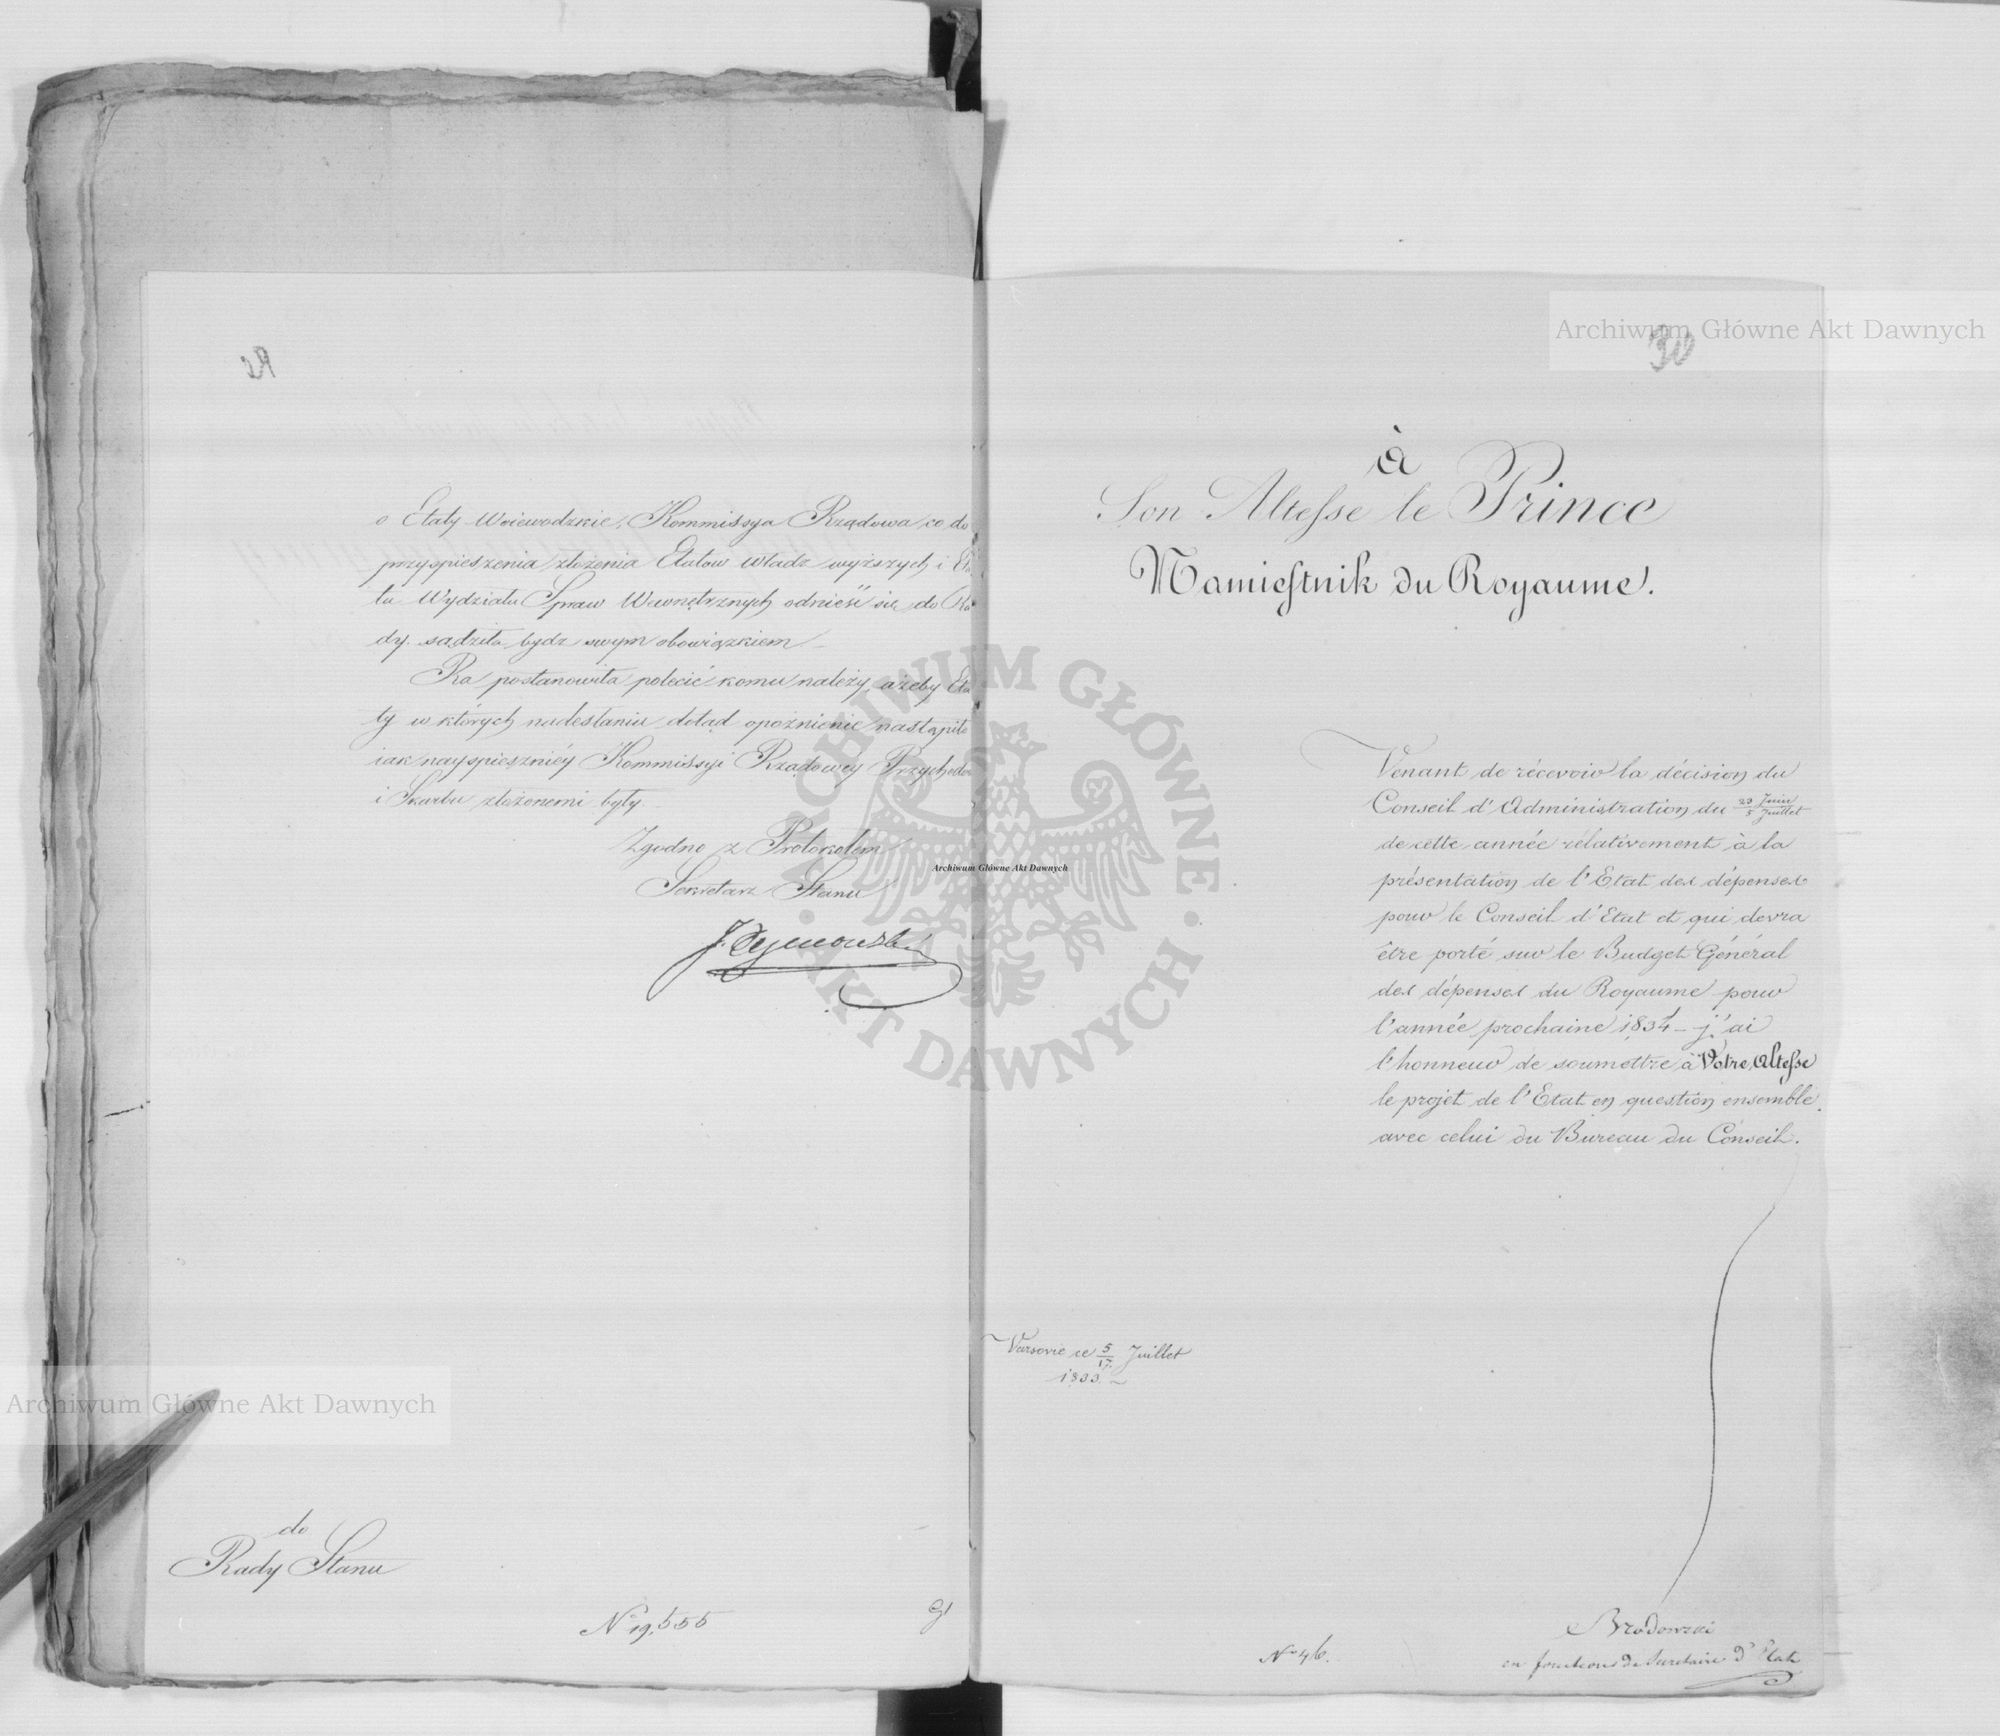 o Etaty Woiewodzkie, Kommissya Rządowa co do
przyspieszenia złożenia Etatow Władz wyższych i Eta
tu Wydziału Spraw Wewnętrznych odnieść się do Ra
dy sądziła bydz swym obowiązkiem
Ra postanowiła polecić komu należy, ażeby Eta
ty w których nadesłaniu dotąd opoznienie nastąpiło
iak nayspieszniéy Kommissyi Rządowéy Przychodow
i Skarbu złożonemi były
Zgodno z Protokołem
Sekretarz Stanu
do
Rady Stanu
No 19,555
30
à
Son Altesse le Prince
Namiestnik du Royaume.
Venant de récevoir la décision du
Conseil d'Administration du 23 Juin / 5 Juillet
de cette année rélativement à la
présentation de l'Etat des dépenses
pour le Conseil d'Etat et qui devra
être porté sur le Budget Général
des dépenses du Royaume pour
l'année prochaine 1834 – j'ai
l'honneur de soumettre à Votre Altesse
le projet de l'Etat en question ensemble
avec celui du Bureau du Conseil.
Varsovie ce 5/17 Juillet
1833.
No 46.
Brodowski
en fonctions de Secretaire d'Etat
Archiwum Główne Akt Dawnych
Archiwum Główne Akt Dawnych
Archiwum Główne Akt Dawnych
ARCHIWUM GŁÓWNE
AKT DAWNYCH